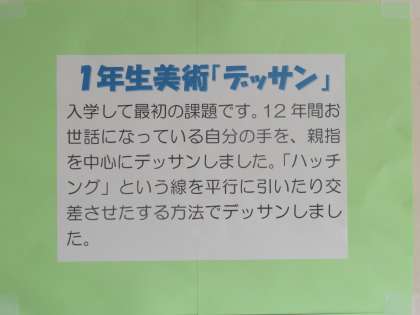 1年生美術「デッサン」
入学して最初の課題です。12年間お
世話になっている自分の手を、親指
を中心にデッサンしました。「ハッチ
ング」という線を平行に引いたり交
差させたする方法でデッサンしまし
た。